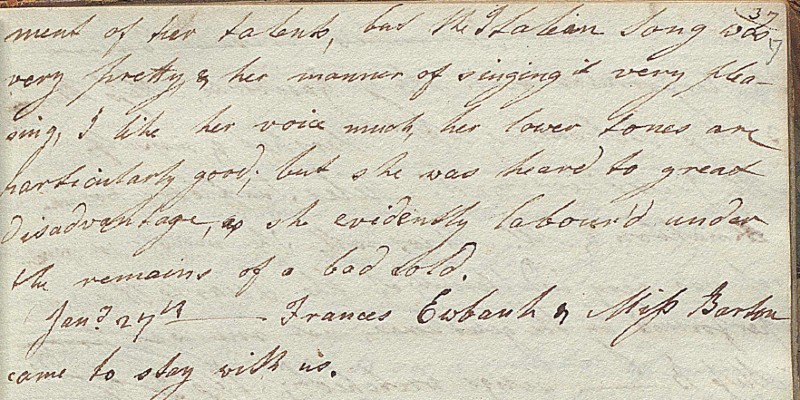 37
ment of her talents, but the Italian Song was
very pretty & her manner of singing it very plea-
sing, I like her voice much, her lower tones are
particularly good; but she was heard to great
disadvantage, as she evidently labour'd under
the remains of a bad Cold.
Jany. 27th — Frances Ewbank & Miss Barton
came to stay with us.